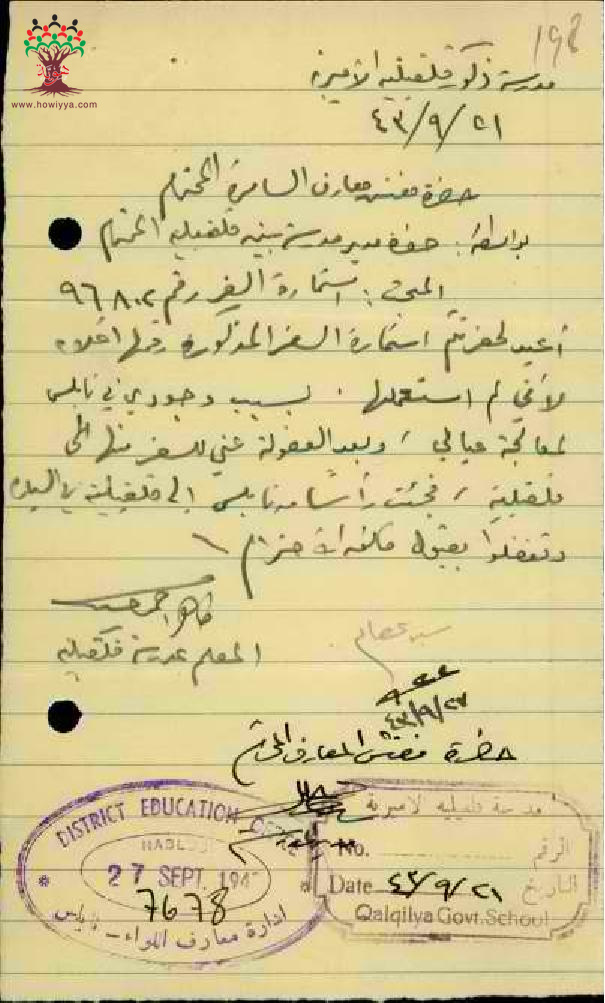 198
www.howiyya.com
مدرسة ذكور قلقيلية الأميرية
٤٣/٩/٢١
حضرة مفتش معارف السامرة المحترم
بواسطة: حضرة مدير مدرسة قلقيلية المحترم
المبحث: استمارة السفر رقم ٩٦٨٠٢
أعيد لحضرتكم استمارة السفر المذكورة رقمها أعلاه
لأني لم استعملها. بسبب وجودي في نابلس
لمعالجة عيالي، وبعد العطلة عني للسفر منها الى
قلقيلية، فجئت رأساً من نابلس إلى قلقيلية
وتفضلوا بقبول فائق الاحترام
المعلم بمدرسة قلقيلية
٤٣/٩/٢٢
حضرة مفتش المعارف المحترم
DISTRICT EDUCATION
NABLUS
27 SEPT. 194
7678
ادارة معارف اللواء - نابلس
مدرسة قلقيلية الاميرية
No. الرقم
Date ٤٣/٩/٢١ التاريخ
Qalqilya Govt. School